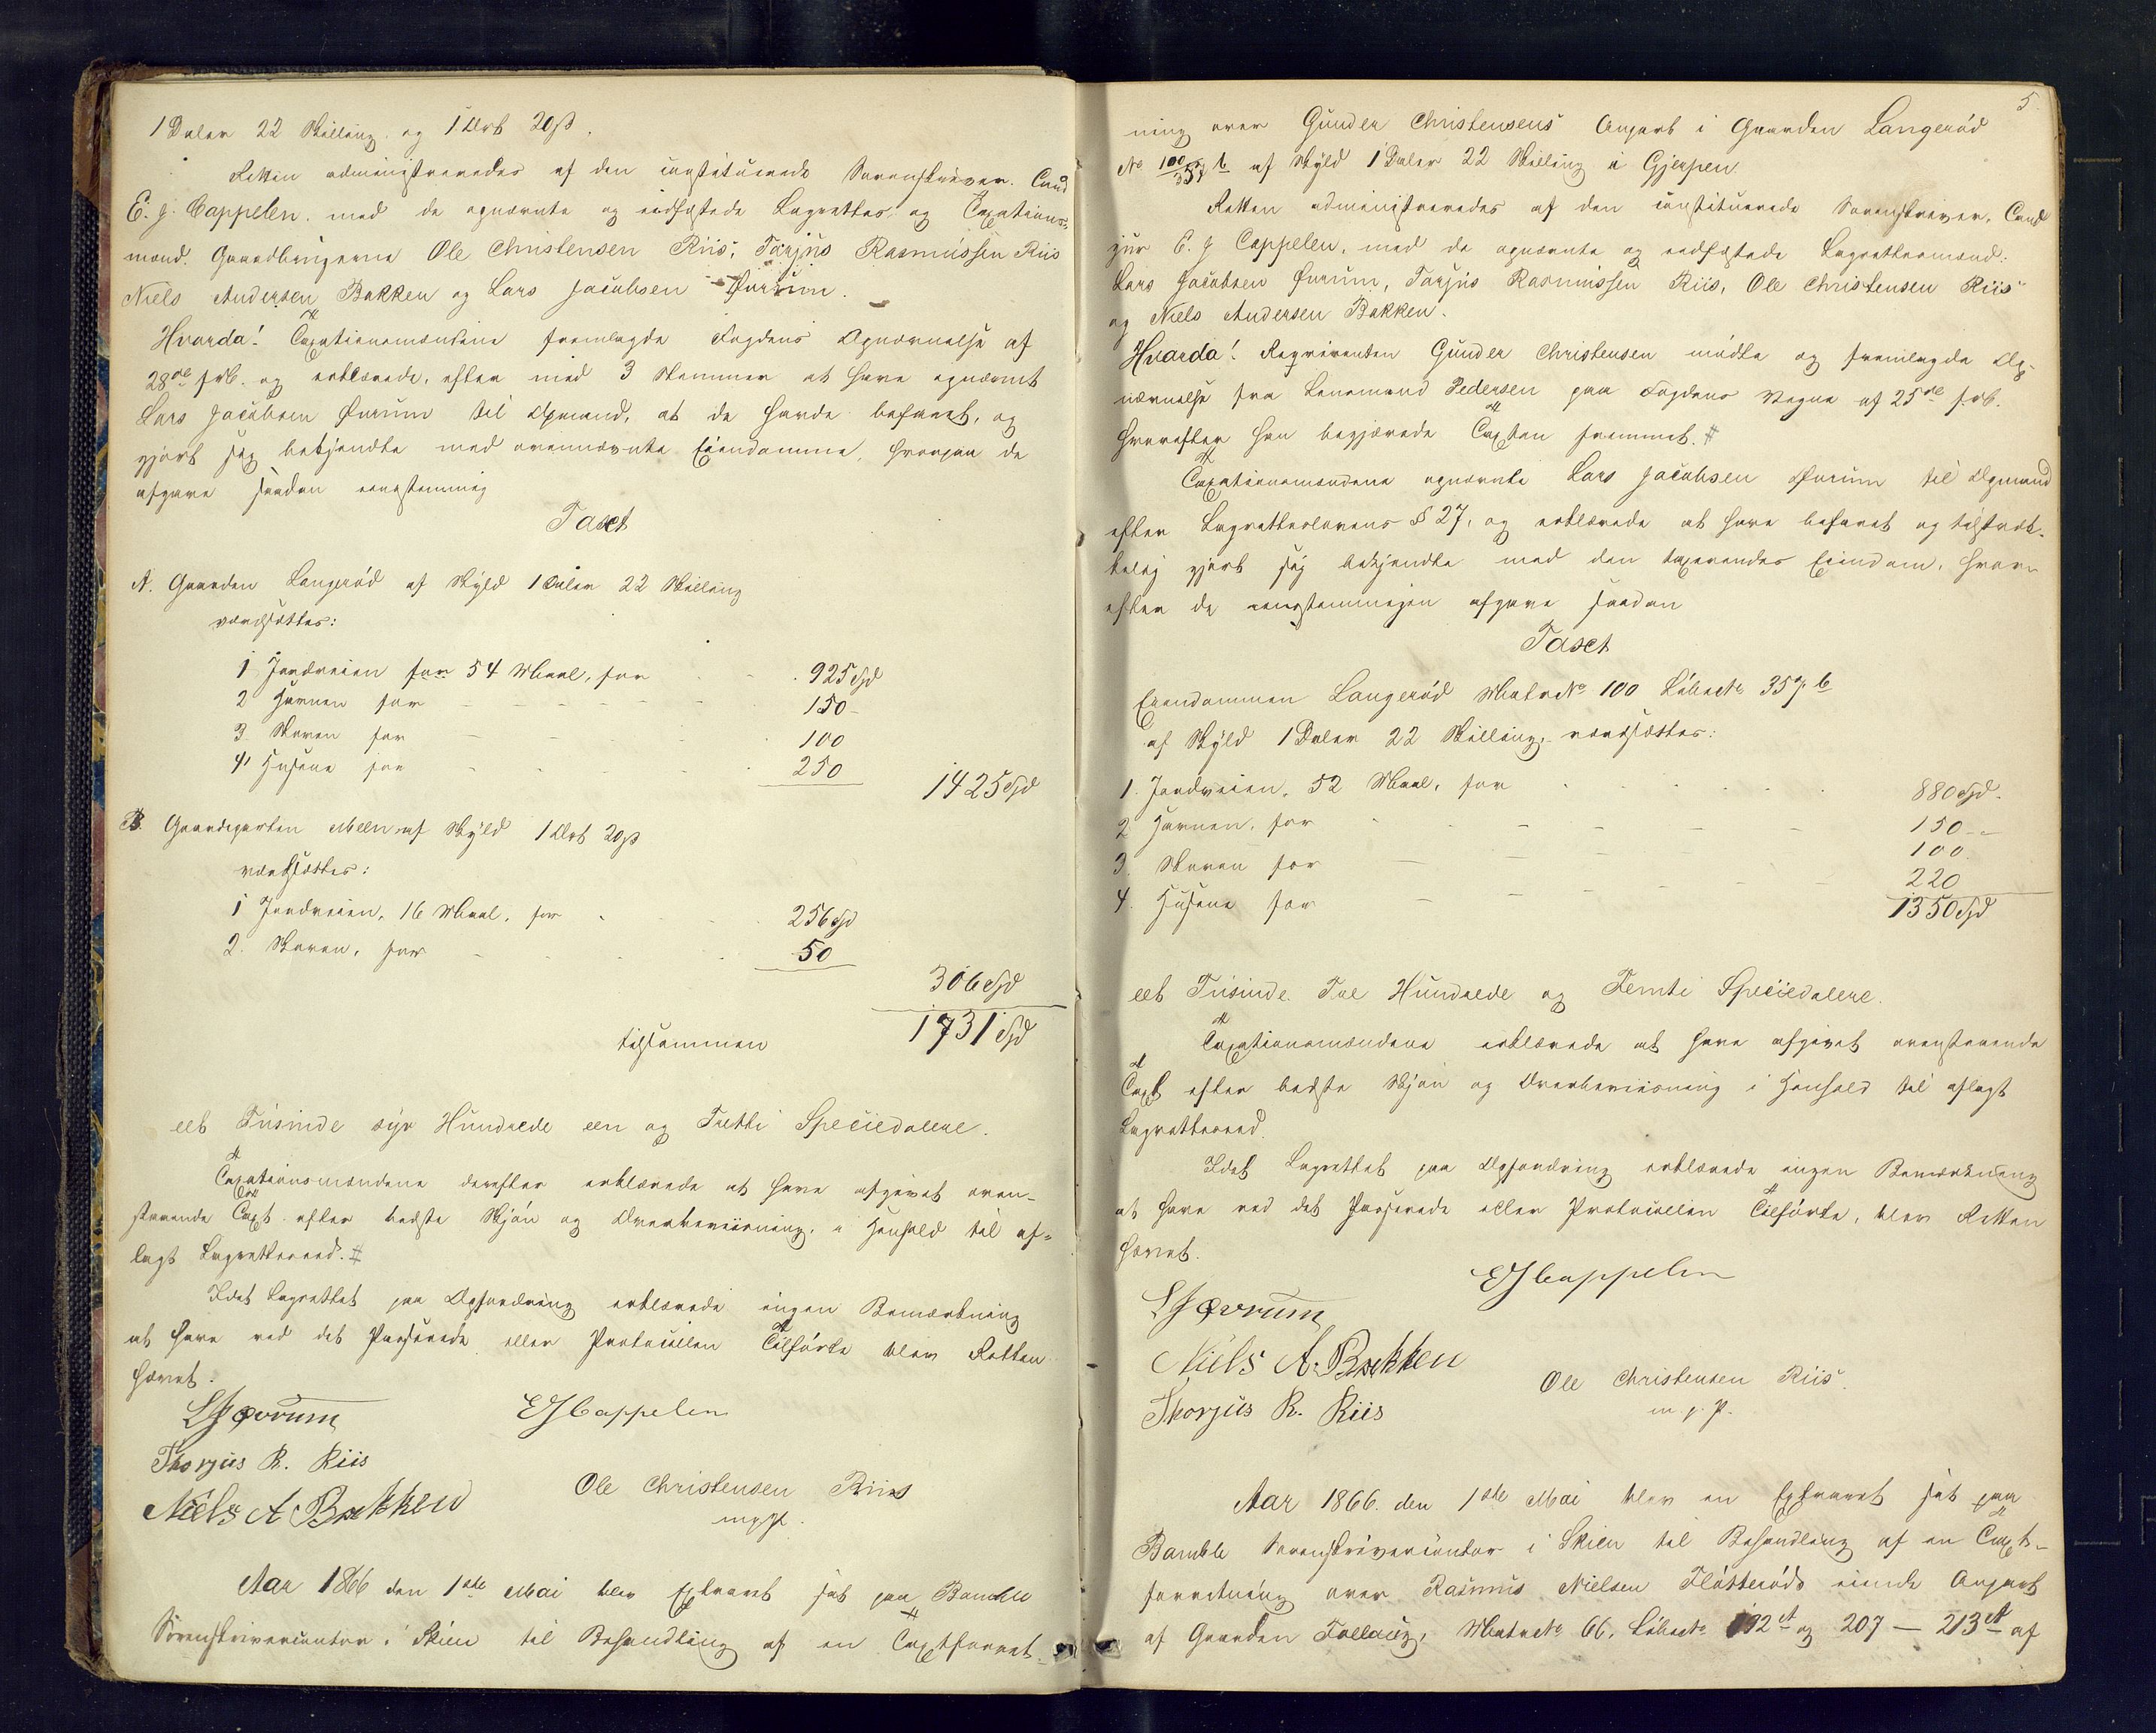 1 Daler 22 Skilling og 1 Ort 20 ß.
Retten administreredes af den constituerede Sorenskriver Cand
E. J. Cappelen med de opnævnte og eedfæstede Lagrettes og Taxations-
mænd Gaardbrugerne Ole Christensen Riis, Torjus Rasmussen Riis
Niels Andersen Bakken og Lars Jacobsen Øvrum.
Hvorda! Taxationsmændene fremlagde Fogdens Opnævnelse af
28de f.M. og erklærede, efter med 3 Stemmer at have opnævnt
Lars Jacobsen Øvrum til Opmand, at de havde befaret, og
gjort sig bekjendte med ovennævnte Eiendomme, hvorpaa de
afgave saadan eenstemmig
Taxt
A. Gaarden Langerød af Skyld 1 Daler 22 Skilling
værdsættes:
1 Jordveien for 54 Maal, for 925 Spd
2 Havnen for 150 -
3. Skoven for 100
4, Husene for 250 1425 Spd
B. Gaardeparten Meen af Skyld 1 Ort 20 ß
værdsættes:
1 Jordveien, 16 Maal, for 256 Spd
2. Skoven, for 50
306 Spd
tilsammen 1731 Spd
eet Tusinde syv Hundrede een og Tretti Speciedalere.
Taxationsmændene derefter erklærede at have afgivet oven-
staaende Taxt efter bedste Skjøn og Overbeviisning, i Henhold til af-
lagt Lagrettereed.
Idet Lagrettet paa Opfordring erklærede ingen Bemærkning
at have ved det Passerede eller Protocollen Tilførte blev Retten
hævet.
LJ Øvrum EJ Cappelen
Thorjus R. Riis
Niels A Bakken Ole Christensen Riis
m.p.P.
Aar 1866 den 1ste Mai blev Extraret sat paa Bamble
Sorenskrivercontor i Skien til Behandling af en Taxtforret-
5.
ning over Gunder Christensens Anpart i Gaarden Langerød
No 100/357 b af Skyld 1 Daler 22 Skilling i Gjerpen
Retten administreredes af den constituerede Sorenskriver, Cand
jur E. J Cappelen, med de opnævnte og eedfæstede Lagrettesmænd:
Lars Jacobsen Øvrum, Torjus Rasmussen Riis, Ole Christensen Riis
og Niels Andersen Bakken.
Hvorda! Reqvirenten Gunder Christensen mødte og fremlagde Op-
nævnelse fra Lensmand Pedersen paa Fogdens Vegne af 25de f.M.
hvorefter han begjærede Taxten fremmet.
Taxationsmændene opnævnte Lars Jacobsen Øvrum til Opmand
efter Lagretteslovens § 27, og erklærede at have befaret og tilstræk-
kelig gjort sig bekjendte med den taxerendes Eiendom, hvor-
efter de eenstemmigen afgave saadan
Taxt
Eiendommen Langerød Matr No 100 Løbe No 357 b
af Skyld 1 Daler 22 Skilling, værdsættes:
1. Jordveien, 52 Maal, for 880 Spd.
2 Havnen, for 150 -
3. Skoven for 100
4. Husene for 220
1350 Spd
eet Tusinde Tre Hundrede og Femti Speciedalere.
Taxationsmændene erklærede at have afgivet ovenstaaende
Taxt efter bedste Skjøn og Overbeviisning i Henhold til aflagt
Lagretteseed.
Idet Lagrettet paa Opfordring erklærede ingen Bemærkning
at have ved det Passerede eller Protocollen Tilførte, blev Retten
hævet.
EJ Cappelen
LJ Øvrum
Niels A. Bakken Ole Christensen Riis
Thorjus R. Riis m.p.P.
Aar 1866 den 1ste Mai blev en Extraret sat paa
Bamble Sorenskrivercontor i Skien til Behandling af en Taxt-
forretning over Rasmus Nielsen Fløtterøds eiende Anpart
af Gaarden Follaug, Matr No 66, Løbe No og 207 — 213 af